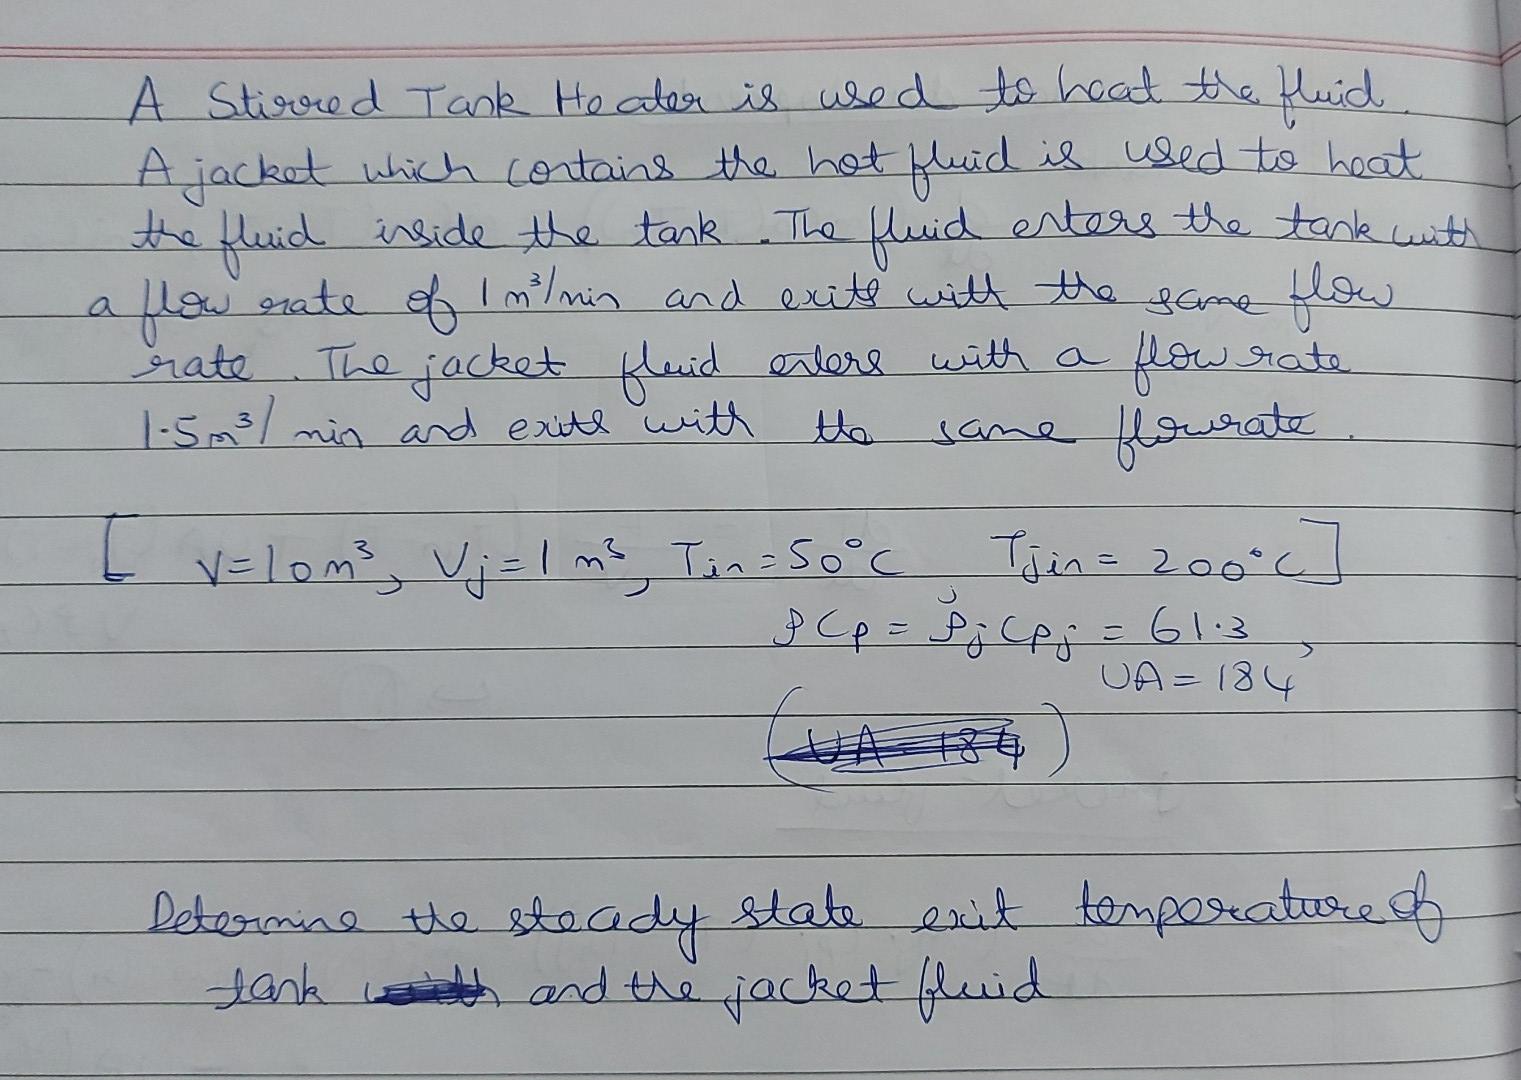 A Stirred Tank Heater is used to heat the fluid.
A jacket which contains the hot fluid is used to heat
the fluid inside the tank. The fluid enters the tank with
a flow rate of 1 m³/min and exits with the same flow
rate. The jacket fluid enters with a flow rate
1.5m³/ min and exits with the same flowrate.
[ V=10m³, Vj=1 m³, Tin=50°C Tjin= 200°C]
ρCp = ρjCpj = 61.3,
UA=184
(UA=184)
Determine the steady state exit temperature of
tank and the jacket fluid